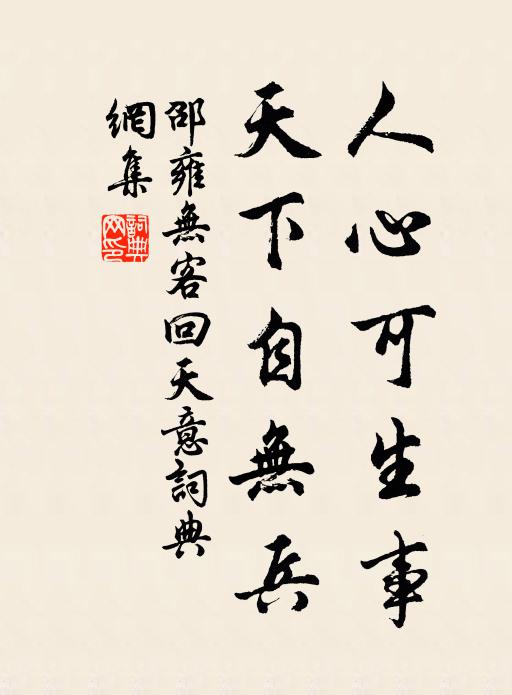 人心可生事
天下自無兵
邵雍無客回天意詞典
網集
詞典網印